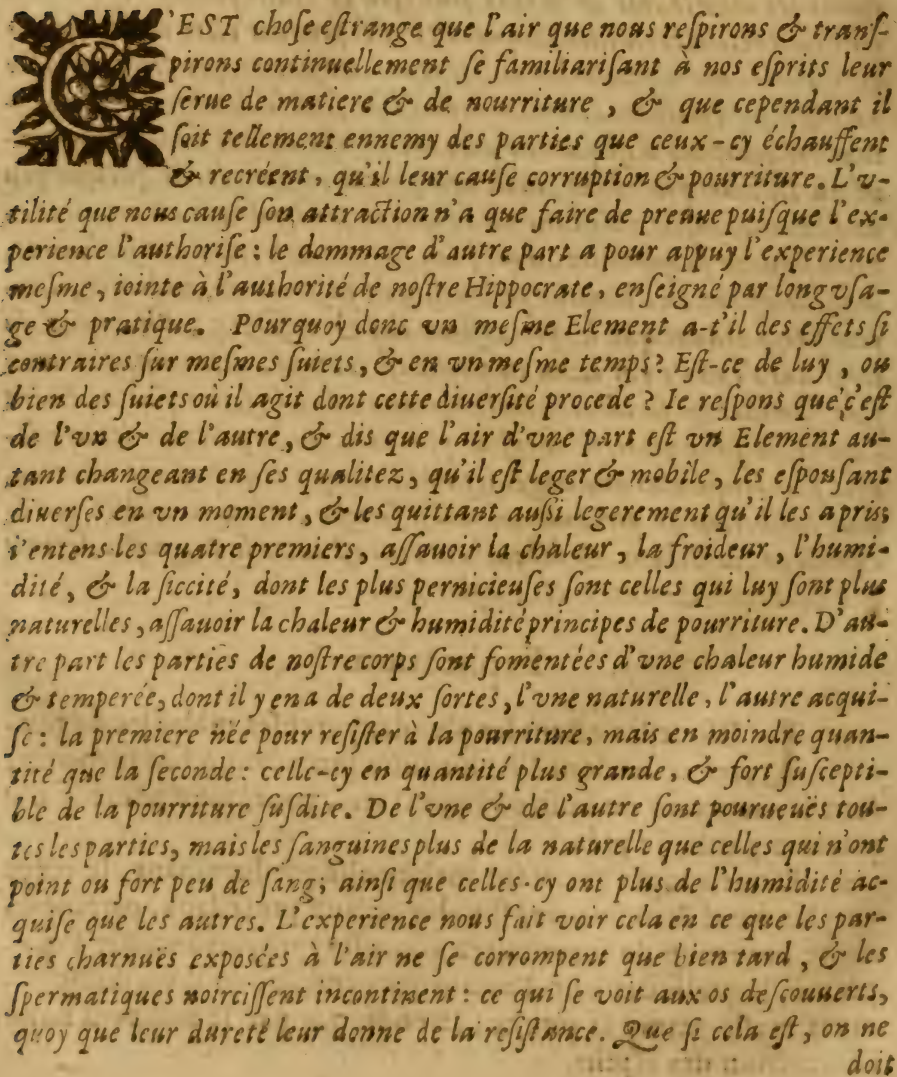 C'EST chose estrange que l'air que nous respirons & trans-
pirons continuellement se familiarisant à nos esprits leur
serue de matiere & de nourriture , & que cependant il
soit tellement ennemy des parties que ceux-cy échauffent
& recréent, qu'il leur cause corruption & pourriture. L'v-
tilité que nous cause son attraction n'a que faire de preuue puisque l'ex-
perience l'authorise : le dommage d'autre part a pour appuy l'experience
mesme, iointe à l'authorité de nostre Hippocrate, enseigné par long vsa-
ge & pratique. Pourquoy donc vn mesme Element a-t'il des effets si
contraires sur mesmes suiets, & en vn mesme temps? Est-ce de luy , ou
bien des suiets où il agit dont cette diuersité procede ? Ie respons que c'est
de l'vn & de l'autre, & dis que l'air d'vne part est vn Element au-
tant changeant en ses qualitez, qu'il est leger & mobile, les espousant
diuerses en vn moment, & les quittant aussi legerement qu'il les a pris;
i'entens les quatre premiers, assauoir la chaleur, la froideur, l'humi-
dité, & la siccité, dont les plus pernicieuses sont celles qui luy sont plus
naturelles, assauoir la chaleur & humidité principes de pourriture. D'au-
tre part les parties de nostre corps sont fomentées d'vne chaleur humide
& temperée, dont il y en a de deux sortes, l'vne naturelle, l'autre acqui-
se : la premiere née pour resister à la pourriture, mais en moindre quan-
tité que la seconde: celle-cy en quantité plus grande, & fort suscepti-
ble de la pourriture susdite. De l'vne & de l'autre sont pourueuës tou-
tes les parties, mais les sanguines plus de la naturelle que celles qui n'ont
point ou fort peu de sang; ainsi que celles-cy ont plus de l'humidité ac-
quise que les autres. L'experience nous fait voir cela en ce que les par-
ties charnuës exposées à l'air ne se corrompent que bien tard , & les
spermatiques noircissent incontinent : ce qui se voit aux os descouuerts,
quoy que leur dureté leur donne de la resistance. Que si cela est, on ne
doit